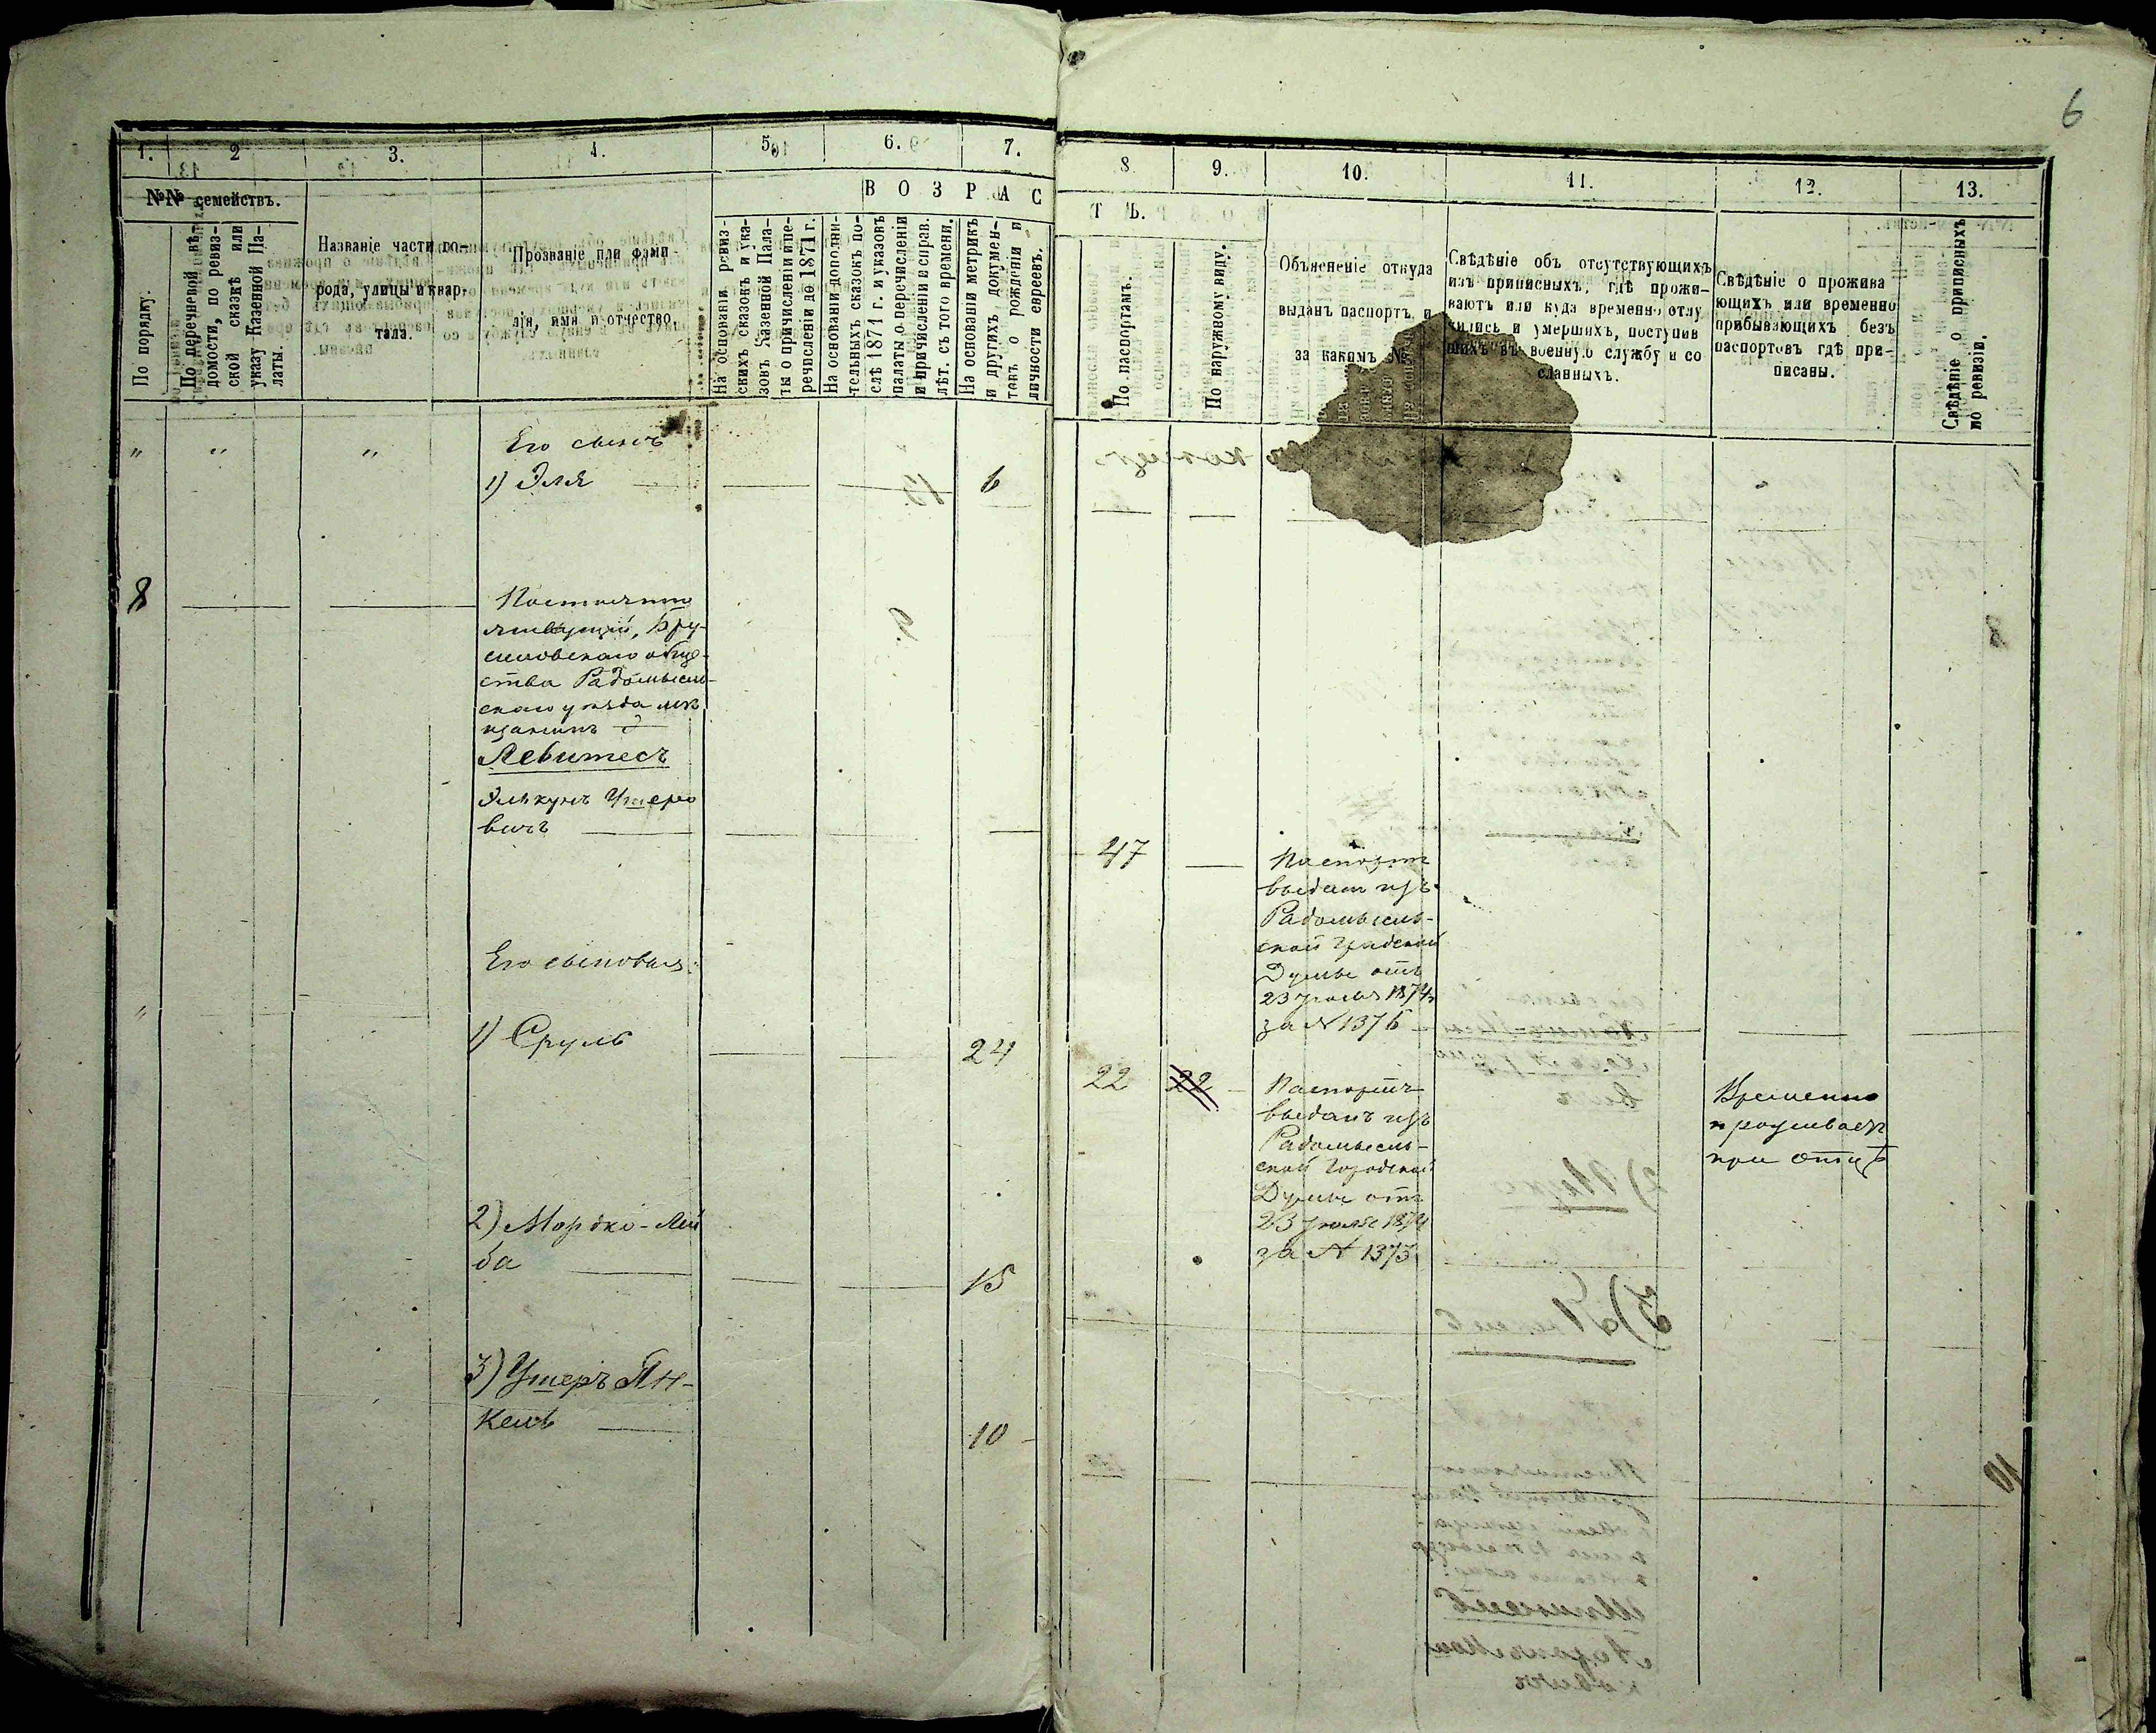 6
1. 2 3. 4. 5. 6. 7. 8. 9. 10. 11. 12. 13.
№№ семействъ.
В О З Р А С Т Ъ.
По порядку.
По перечневой вѣ-
домости, по ревиз-
ской сказкѣ или
указу Казенной Па-
латы
Названіе части го-
рода, улицы и квар-
тала.
Прозваніе или фами-
лія, имя и отчество.
На основаніи ревиз-
скихъ сказокъ и ука-
зовъ Казенной Пала-
ты о причисленіи и пе-
речисленіи до 1871 г.
На основаніи дополни-
тельныхъ сказокъ по-
слѣ 1871 г. и указовъ
палаты о перечисленіи
и причисленіи и справ.
лѣт. съ того времени.
На основаніи метрикъ
и другихъ докумен-
товъ о рожденіи и
личности евреевъ.
По паспортамъ.
По наружному виду.
Объясненіе откуда
выданъ паспортъ и
за какимъ №
Свѣдѣніе объ отсутствующихъ
изъ приписныхъ, гдѣ прожи-
ваютъ или куда временно отлу
чились и умершихъ, поступив
шихъ въ военную службу и со
сланныхъ.
Свѣдѣніе о прожива
ющихъ или временно
прибывающихъ безъ
паспортовъ гдѣ при-
писаны.
Свѣдѣніе о приписныхъ
по ревизіи.
" " "
Его сынъ
1) Эля 6
8
Постоянно
Бру-
силовскаго обще-
ства Радомысль-
скаго уѣзда мѣ
щанинъ
Левитесъ
Элькунъ Ушеро
вичъ
47
Паспортъ
выданъ изъ
Радомысль-
ской Градской
Думы отъ
23 Іюля 1874
за № 1376
Его сыновья:
"
1) Сруль 24
22 22
Паспортъ
выданъ изъ
Радомысль-
ской Городской
Думы отъ
23 Іюля 1874
за № 1375
Временно
проживаетъ
при отцѣ
2) Мордко-Лей
ба 15
3) Ушеръ Ян-
кель 10